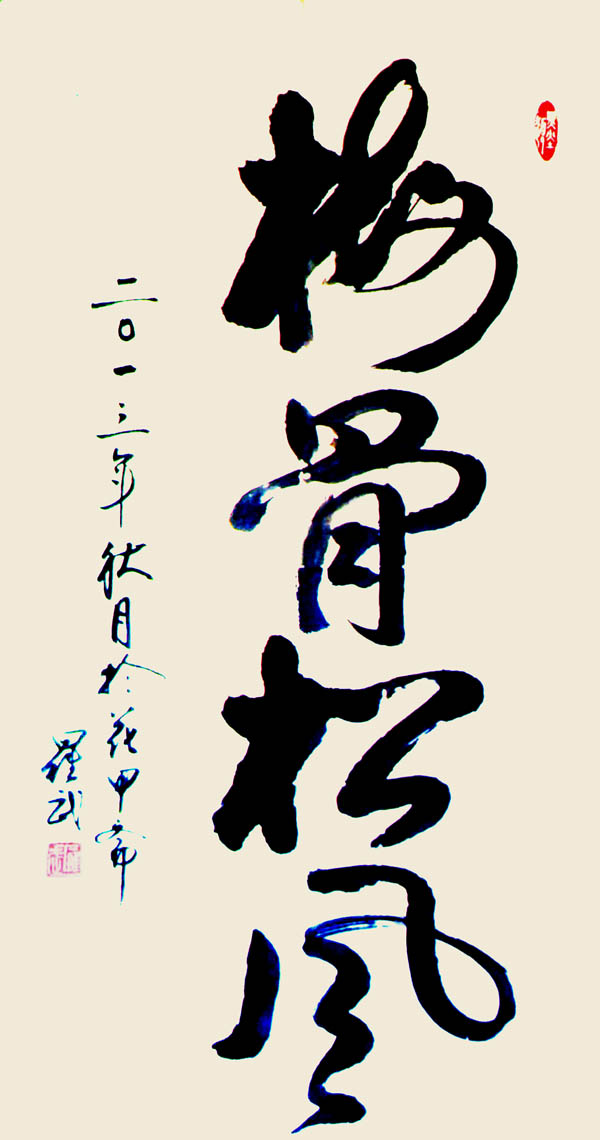 梅骨松风
二〇一三年秋月於花甲斋
罗武